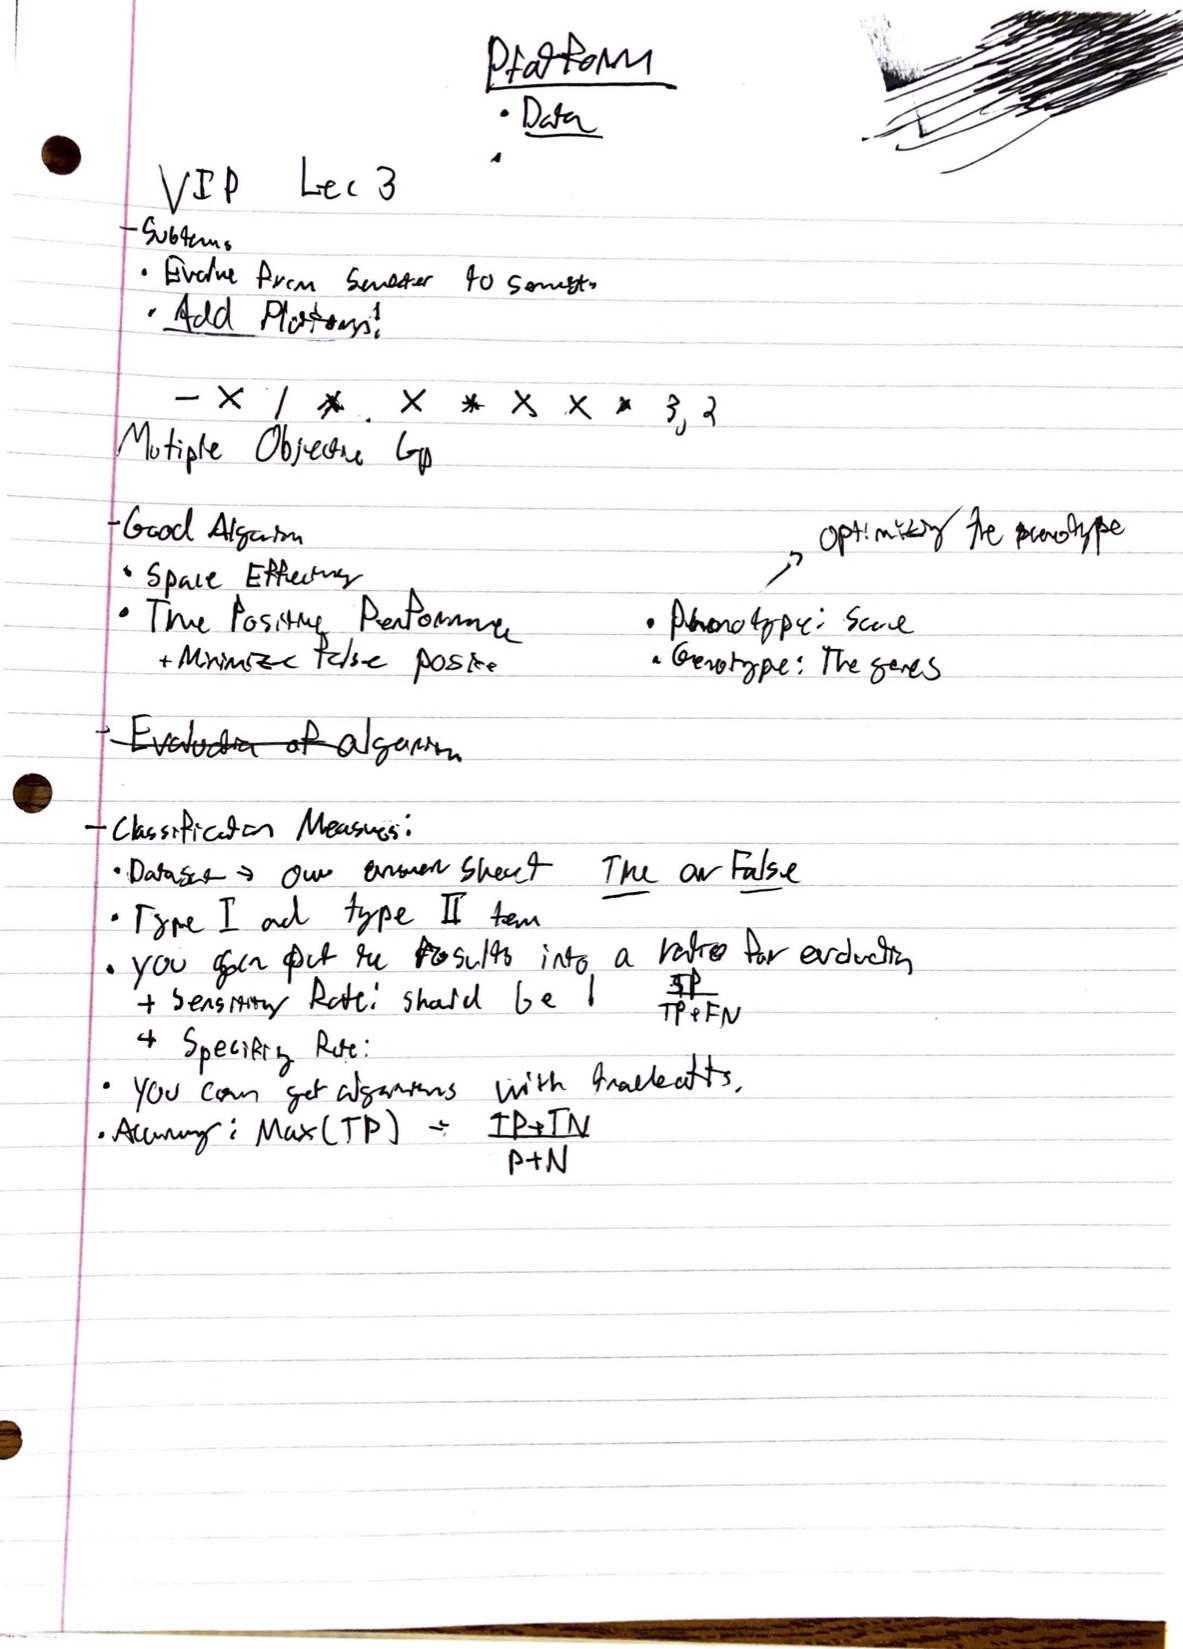 Platform
• Data
•
VIP Lec 3
- Subtems
• Evolve from Semester to semest
• Add Platforms!
- X / * . X * X X * 3, 2
Mutiple Objective Gp
- Good Algorithm
optimizing the phenotype
• Space Efficiency
• True Positive Performance
• Phenotype: Score
+ Minimize false positive
• Genotype: The genes
- Evaluation of algorithm
- Classification Measures:
• Dataset → our answer sheet True or False
• Type I and type II
• you can put the results into a ratio for evaluating
+ Sensitivity Rate: should be 1 TP
TP+FN
+ Specifity Rate:
• you can get algorithms with tradeoffs.
• Accuracy: Max(TP) ÷ TP+TN
P+N